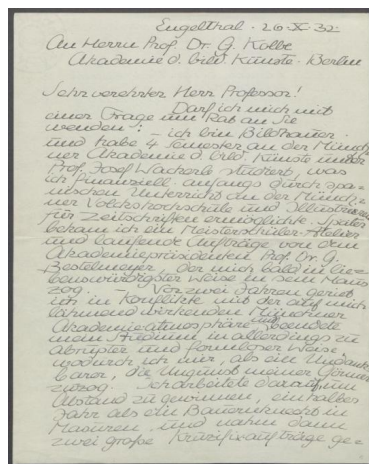 Engelthal · 26·X·32·
An Herrn Prof. Dr. G. Kolbe
Akademie d. bild. Künste · Berlin
Sehr verehrter Herr Professor!
Darf ich mich mit
einer Frage um Rat an Sie
wenden?: – ich bin Bildhauer ·
und habe 4 Semester an der Münch
ner Akademie d. bild. Künste unter
Prof. Josef Wackerle studiert, was
ich finanziell anfangs durch spa=
nischen Unterricht an der Münch=
ner Volkshochschule und Illustrationen
für Zeitschriften ermöglichte. Später
bekam ich ein Meisterschüler-Atelier
und laufende Aufträge von dem
Akademiepräsidenten Prof. Dr. G.
Bestelmeyer, der mich bald in lie=
benswürdigster Weise in sein Haus
zog. Vor zwei Jahren geriet
ich in Konflikte mit der auf mich
lähmend wirkenden Münchner
Akademieatmosphäre und beendete
mein Studium in allerdings zu
abrupter und formloser Weise,
wodurch ich mir, als ein Undank=
barer, die Ungunst meiner Gönner
zuzog. Ich arbeitete darauf, um
Abstand zu gewinnen, ein halbes
Jahr als ein Bauernknecht in
Masuren und nahm dann
zwei große Kruzifixaufträge ge=